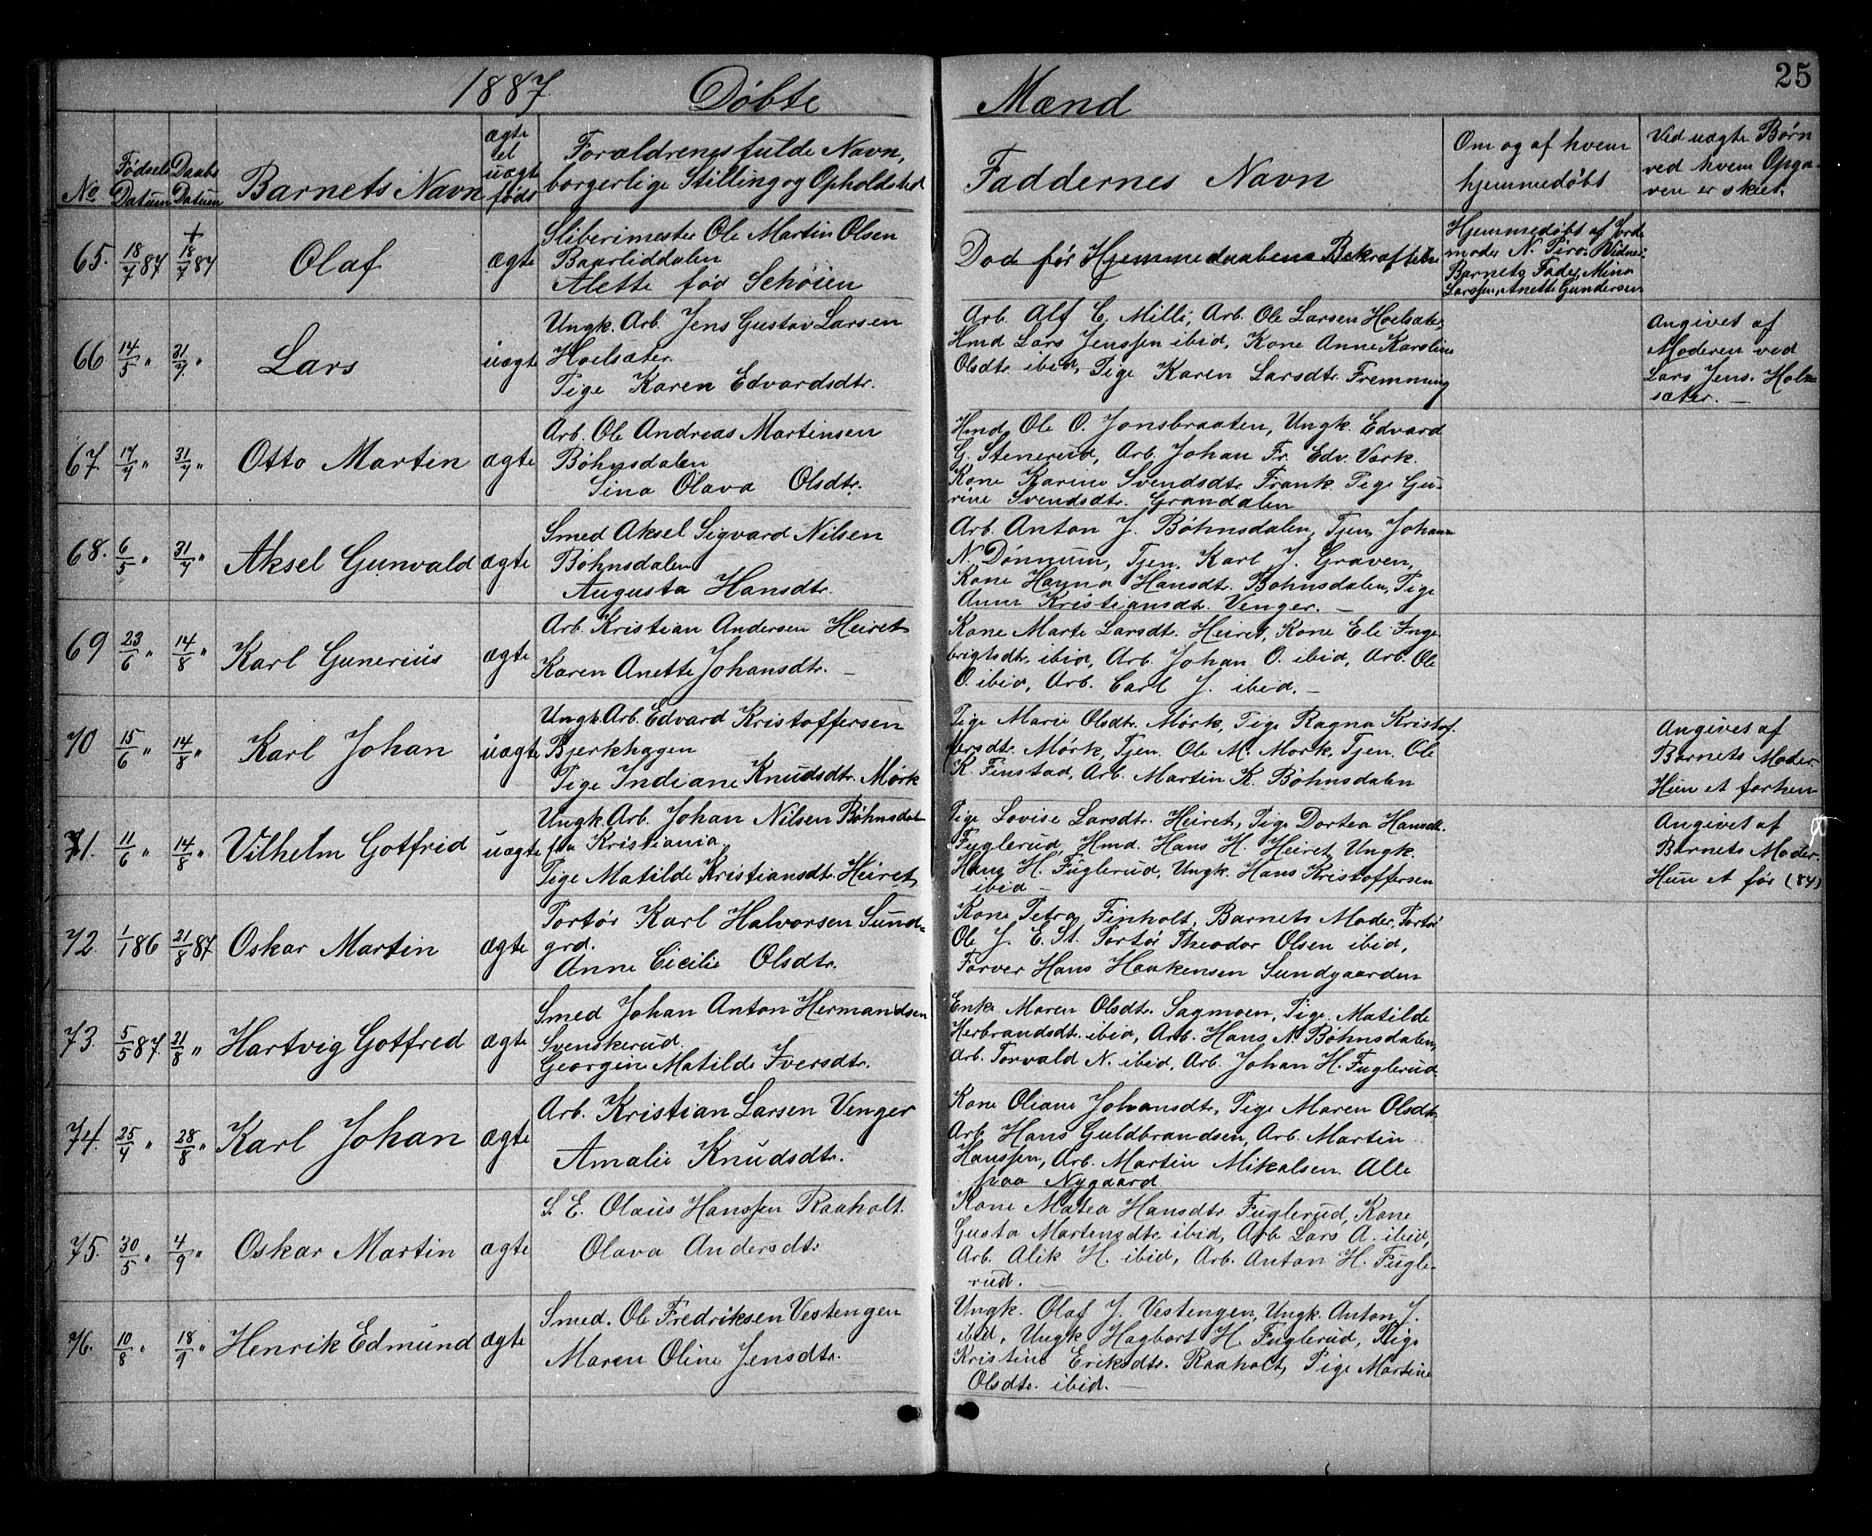 1887 Døbte Mænd 25
No Fødsels Datum Daabs Datum Barnets Navn ægte el uægt. født Forældrenes fulde Navn, borgerlige Stilling og Opholdsted Faddernes Navn Om og af hvem hjemmedøbt Ved uægte Børn ved hvem Opgaven er skeet.
65. 18/7 87 + 18/7 87 Olaf ægte
Sliberimester Ole Martin Olsen
Baarliddalen
Alette fød Schøien
Død før Hjemmedaabens Bekræftelse
Hjemmedøbt af Jorde
moder N. Piro. Vidner:
Barnets Fader, Mina
Larssen, Anette Gundersen
66 14/5 " 31/7 " Lars uægte
Ungk. Arb. Jens Gustav Larsen
Hoelsæter
Pige Karen Edvardsdtr.
Arb. Alf C. Milli, Arb. Ole Larsen Hoelsæter,
Hmd Lars Jenssen ibid, Kone Anne Karoline
Olsdtr ibid, Pige Karen Larsdtr. Fremming
Angivet af
Moderen ved
Lars Jens. Hol-
sæter. —
67. 17/7 " 31/7 " Otto Martin ægte
Arb. Ole Andreas Martinsen
Bøhnsdalen
Sina Olava Olsdtr.
Hmd. Ole O. Jonsbraaten, Ungk. Edvard
G. Stenerud, Arb. Johan Fr. Edv. Værk.
Kone Karine Svendsdtr. Frank Pige Gu-
rine Svendsdtr. Grandalen
68. 6/5 " 31/7 " Aksel Gunvald ægte
Smed Aksel Sigvard Nilsen
Bøhnsdalen
Augusta Hansdtr.
Arb. Anton J. Bøhnsdalen, Tjen. Johan
N. Dønnum, Tjen. Karl J. Graven,
Kone Hanna Hansdt. Bøhnsdalen, Pige
Anne Kristiansdt. Venger. —
69 23/6 " 14/8 " Karl Gunerius ægte
Arb. Kristian Andersen Heiret
Karen Anette Johansdtr. —
Kone Marte Larsdt. Heiret, Kone Eli Inge-
brigtsdtr. ibid, Arb. Johan O. ibid, Arb. Ole
O. ibid, Arb. Carl J. ibid. —
70 15/6 " 14/8 " Karl Johan uægte
Ungk. Arb. Edvard Kristoffersen
Bjerkhagen
Pige Indiane Knudsdtr. Mørk
Pige Marie Olsdtr. Mørk, Pige Ragna Kristof-
fersdtr. Mørk, Tjen. Ole M. Mørk, Tjen. Ole
K. Finstad, Arb. Martin K. Bøhnsdalen
Angivet af
Barnets Moder
Hun et forhen
71. 11/6 " 14/8 " Vilhelm Gotfrid uægte
Ungk. Arb. Johan Nilsen Bøhnsdalen
fra Kristiania
Pige Matilde Kristiansdtr. Heiret
Pige Lovise Larsdtr. Heiret, Pige Dortea Hansdt.
Fuglerud, Hmd. Hans H. Heiret, Ungk.
Hans H. Fuglerud, Ungk. Hans Kristoffersen
ibid —
Angivet af
Barnets Moder.
Hun et før (84)
72. 1/1 86 21/8 87 Oskar Martin ægte
Portør Karl Halvorsen Sund-
grd.
Anne Cicilie Olsdtr.
Kone Petra Finholt, Barnets Moder, Portør
Ole J. E. St. Portør Theodor Olsen ibid,
Farver Hans Haakensen Sundgaarden
73. 5/5 87. 21/8 " Hartvig Gotfred ægte
Smed Johan Anton Hermandsen
Svenskerud.
Georgine Matilde Iversdtr.
Enke Maren Olsdtr. Sagmoen, Pige Matilde
Herbrandsdt. ibid, Arb. Hans N. Bøhnsdalen,
Arb. Torvald N. ibid, Arb. Johan H. Fuglerud.
74. 25/7 " 28/8 " Karl Johan ægte
Arb. Kristian Larsen Venger
Amalie Knudsdtr.
Kone Oliane Johansdtr, Pige Maren Olsdtr.
Arb. Hans Guldbrandsen, Arb. Martin
Hanssen, Arb. Martin Mikalsen. Alle
paa Nygaard
75. 30/5 " 4/9 " Oskar Martin ægte
S. E. Olaus Hanssen Raaholt.
Olava Andersdtr.
Kone Matea Hansdtr. Fuglerud, Kone
Gusta Martinsdtr. ibid, Arb. Lars A. ibid,
Arb. Alik H. ibid, Arb. Anton H. Fugle-
rud. —
76. 10/8 " 18/9 " Henrik Edmund ægte
Smed. Ole Fredriksen Vestengen
Maren Oline Jensdtr.
Ungk. Olaf J. Vestengen, Ungk. Anton J.
ibid, Ungk Hagbart H. Fuglerud, Pige
Kristine Eriksdtr. Raaholt, Pige Martine
Olsdtr. ibid. —